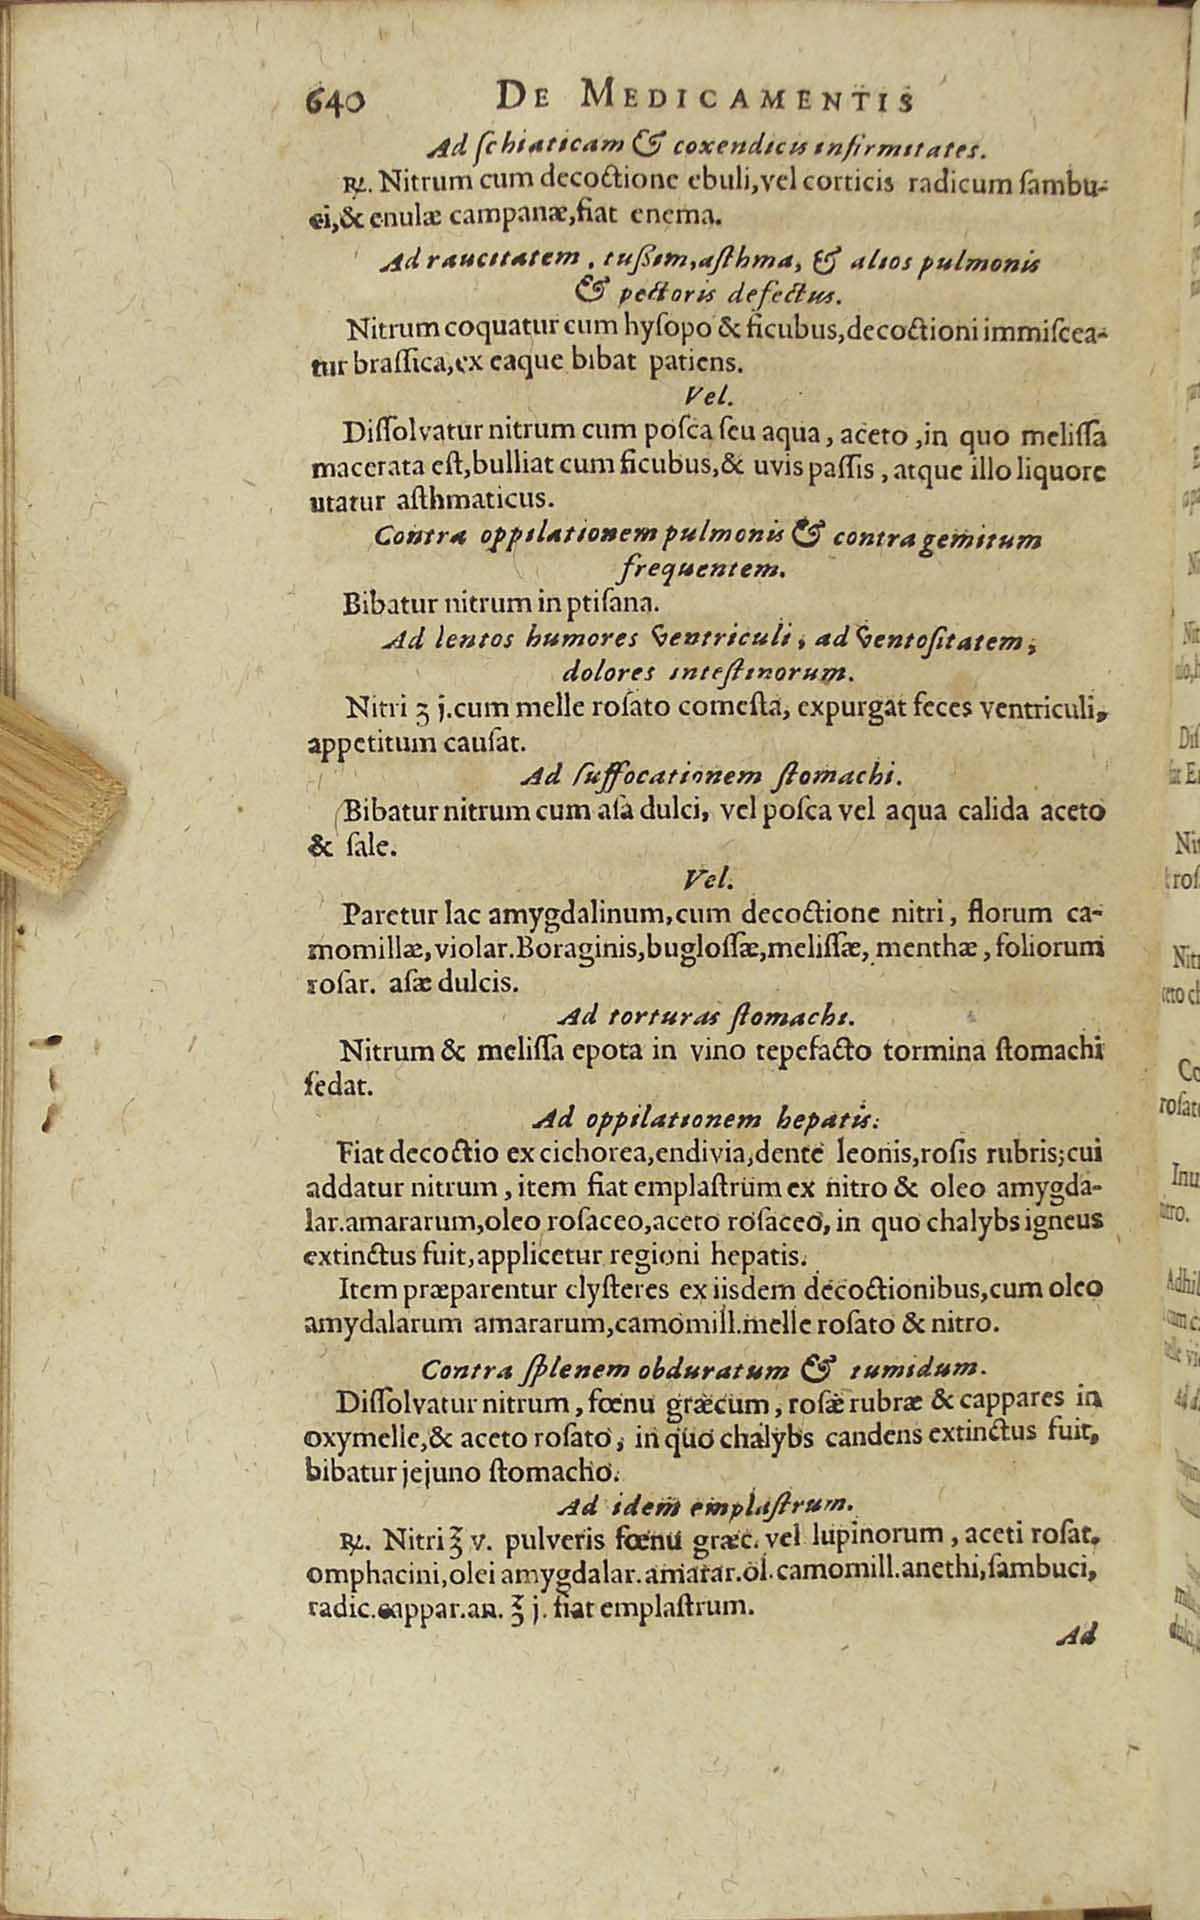 640 DE MEDICAMENTIS
Ad ſchiaticam & coxendicis infirmitates.
℞. Nitrum cum decoctione ebuli, vel corticis radicum ſambu-
ci, & enulæ campanæ, fiat enema.
Ad raucitatem, tußim, aſthma, & alios pulmonis
& pectoris defectus.
Nitrum coquatur cum hyſopo & ficubus, decoctioni immiſcea-
tur braſſica, ex eaque bibat patiens.
Vel.
Diſſolvatur nitrum cum poſca ſeu aqua, aceto, in quo meliſſa
macerata eſt, bulliat cum ficubus, & uvis paſſis, atque illo liquore
utatur aſthmaticus.
Contra oppilationem pulmonis & contra gemitum
frequentem.
Bibatur nitrum in ptiſana.
Ad lentos humores ventriculi, ad ventoſitatem,
dolores inteſtinorum.
Nitri ʒ j. cum melle roſato comeſta, expurgat feces ventriculi,
appetitum cauſat.
Ad ſuffocationem ſtomachi.
Bibatur nitrum cum aſa dulci, vel poſca vel aqua calida aceto
& ſale.
Vel.
Paretur lac amygdalinum, cum decoctione nitri, florum ca-
momillæ, violar. Boraginis, bugloſſæ, meliſſæ, menthæ, foliorum
roſar. aſæ dulcis.
Ad torturas ſtomachi.
Nitrum & meliſſa epota in vino tepefacto tormina ſtomachi
ſedat.
Ad oppilationem hepatis:
Fiat decoctio ex cichorea, endivia, dente leonis, roſis rubris; cui
addatur nitrum, item fiat emplaſtrum ex nitro & oleo amygda-
lar. amararum, oleo roſaceo, aceto roſaceo, in quo chalybs igneus
extinctus fuit, applicetur regioni hepatis.
Item præparentur clyſteres ex iisdem decoctionibus, cum oleo
amydalarum amararum, camomill. melle roſato & nitro.
Contra ſplenem obduratum & tumidum.
Diſſolvatur nitrum, fœnu græcum, roſæ rubræ & cappares in
oxymelle, & aceto roſato, in quo chalybs candens extinctus fuit,
bibatur jejuno ſtomacho.
Ad idem emplaſtrum.
℞. Nitri ℥ v. pulveris fœnu græc. vel lupinorum, aceti roſat.
omphacini, olei amygdalar. amarar. ol. camomill. anethi, ſambuci,
radic. cappar. an. ℥ j. fiat emplaſtrum.
Ad